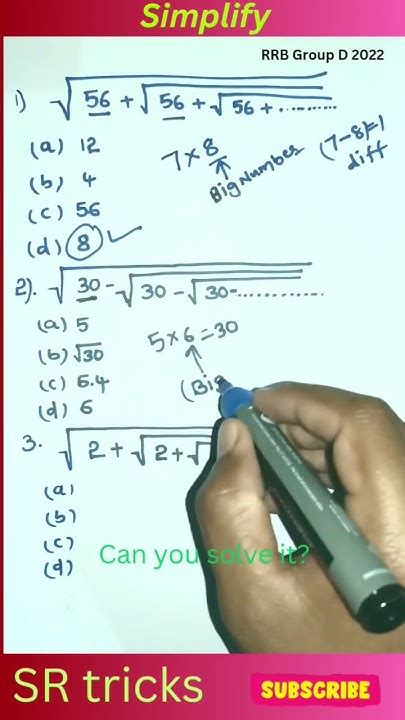 Simplify
RRB Group D 2022
1) √56 + √56 + √56 + ..........
(a) 12
(b) 4
(c) 56
(d) 8 ✓
7 × 8
Big Number
(7-8)=1
diff
2). √30 - √30 - √30 - ..............
(a) 5
(b) √30
(c) 5.4
(d) 6
5 × 6 = 30
(Big
3. √2 + √2 + √
(a)
(b)
(c)
(d)
Can you solve it?
SR tricks
SUBSCRIBE